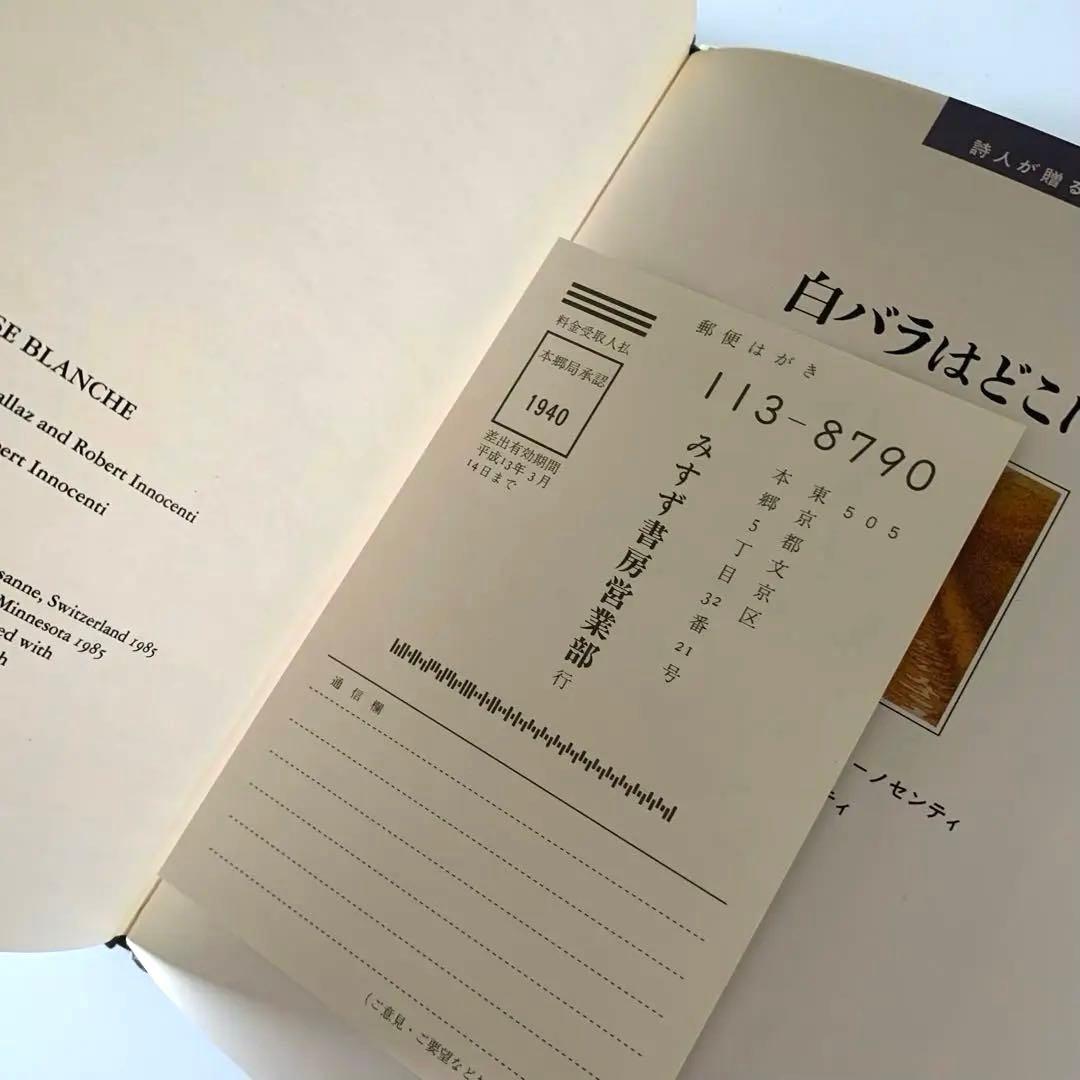 SE BLANCHE
allaz and Robert Innocenti
bert Innocenti
sanne, Switzerland 1985
Minnesota 1985
ed with
h
詩人が贈る
白バラはどこ
ーノセンティ
ティ
料金受取人払
本郷局承認
1940
差出有効期間
平成13年3月
14日まで
郵便はがき
113-8790
505
東京都文京区
本郷5丁目32番21号
みすず書房営業部 行
通信欄
(ご意見・ご要望など